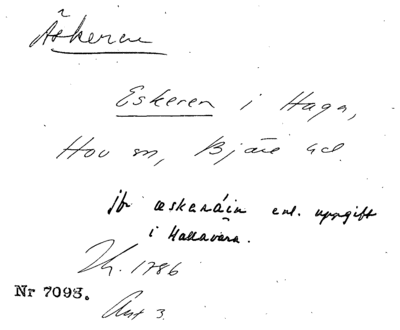 Äskeren
Eskeren i Haga,
Hov sn, Bjäre hd.
jfr æskeráin enl. uppgift
i Hallavara.
1786
Nr 7098.
Ant 3.